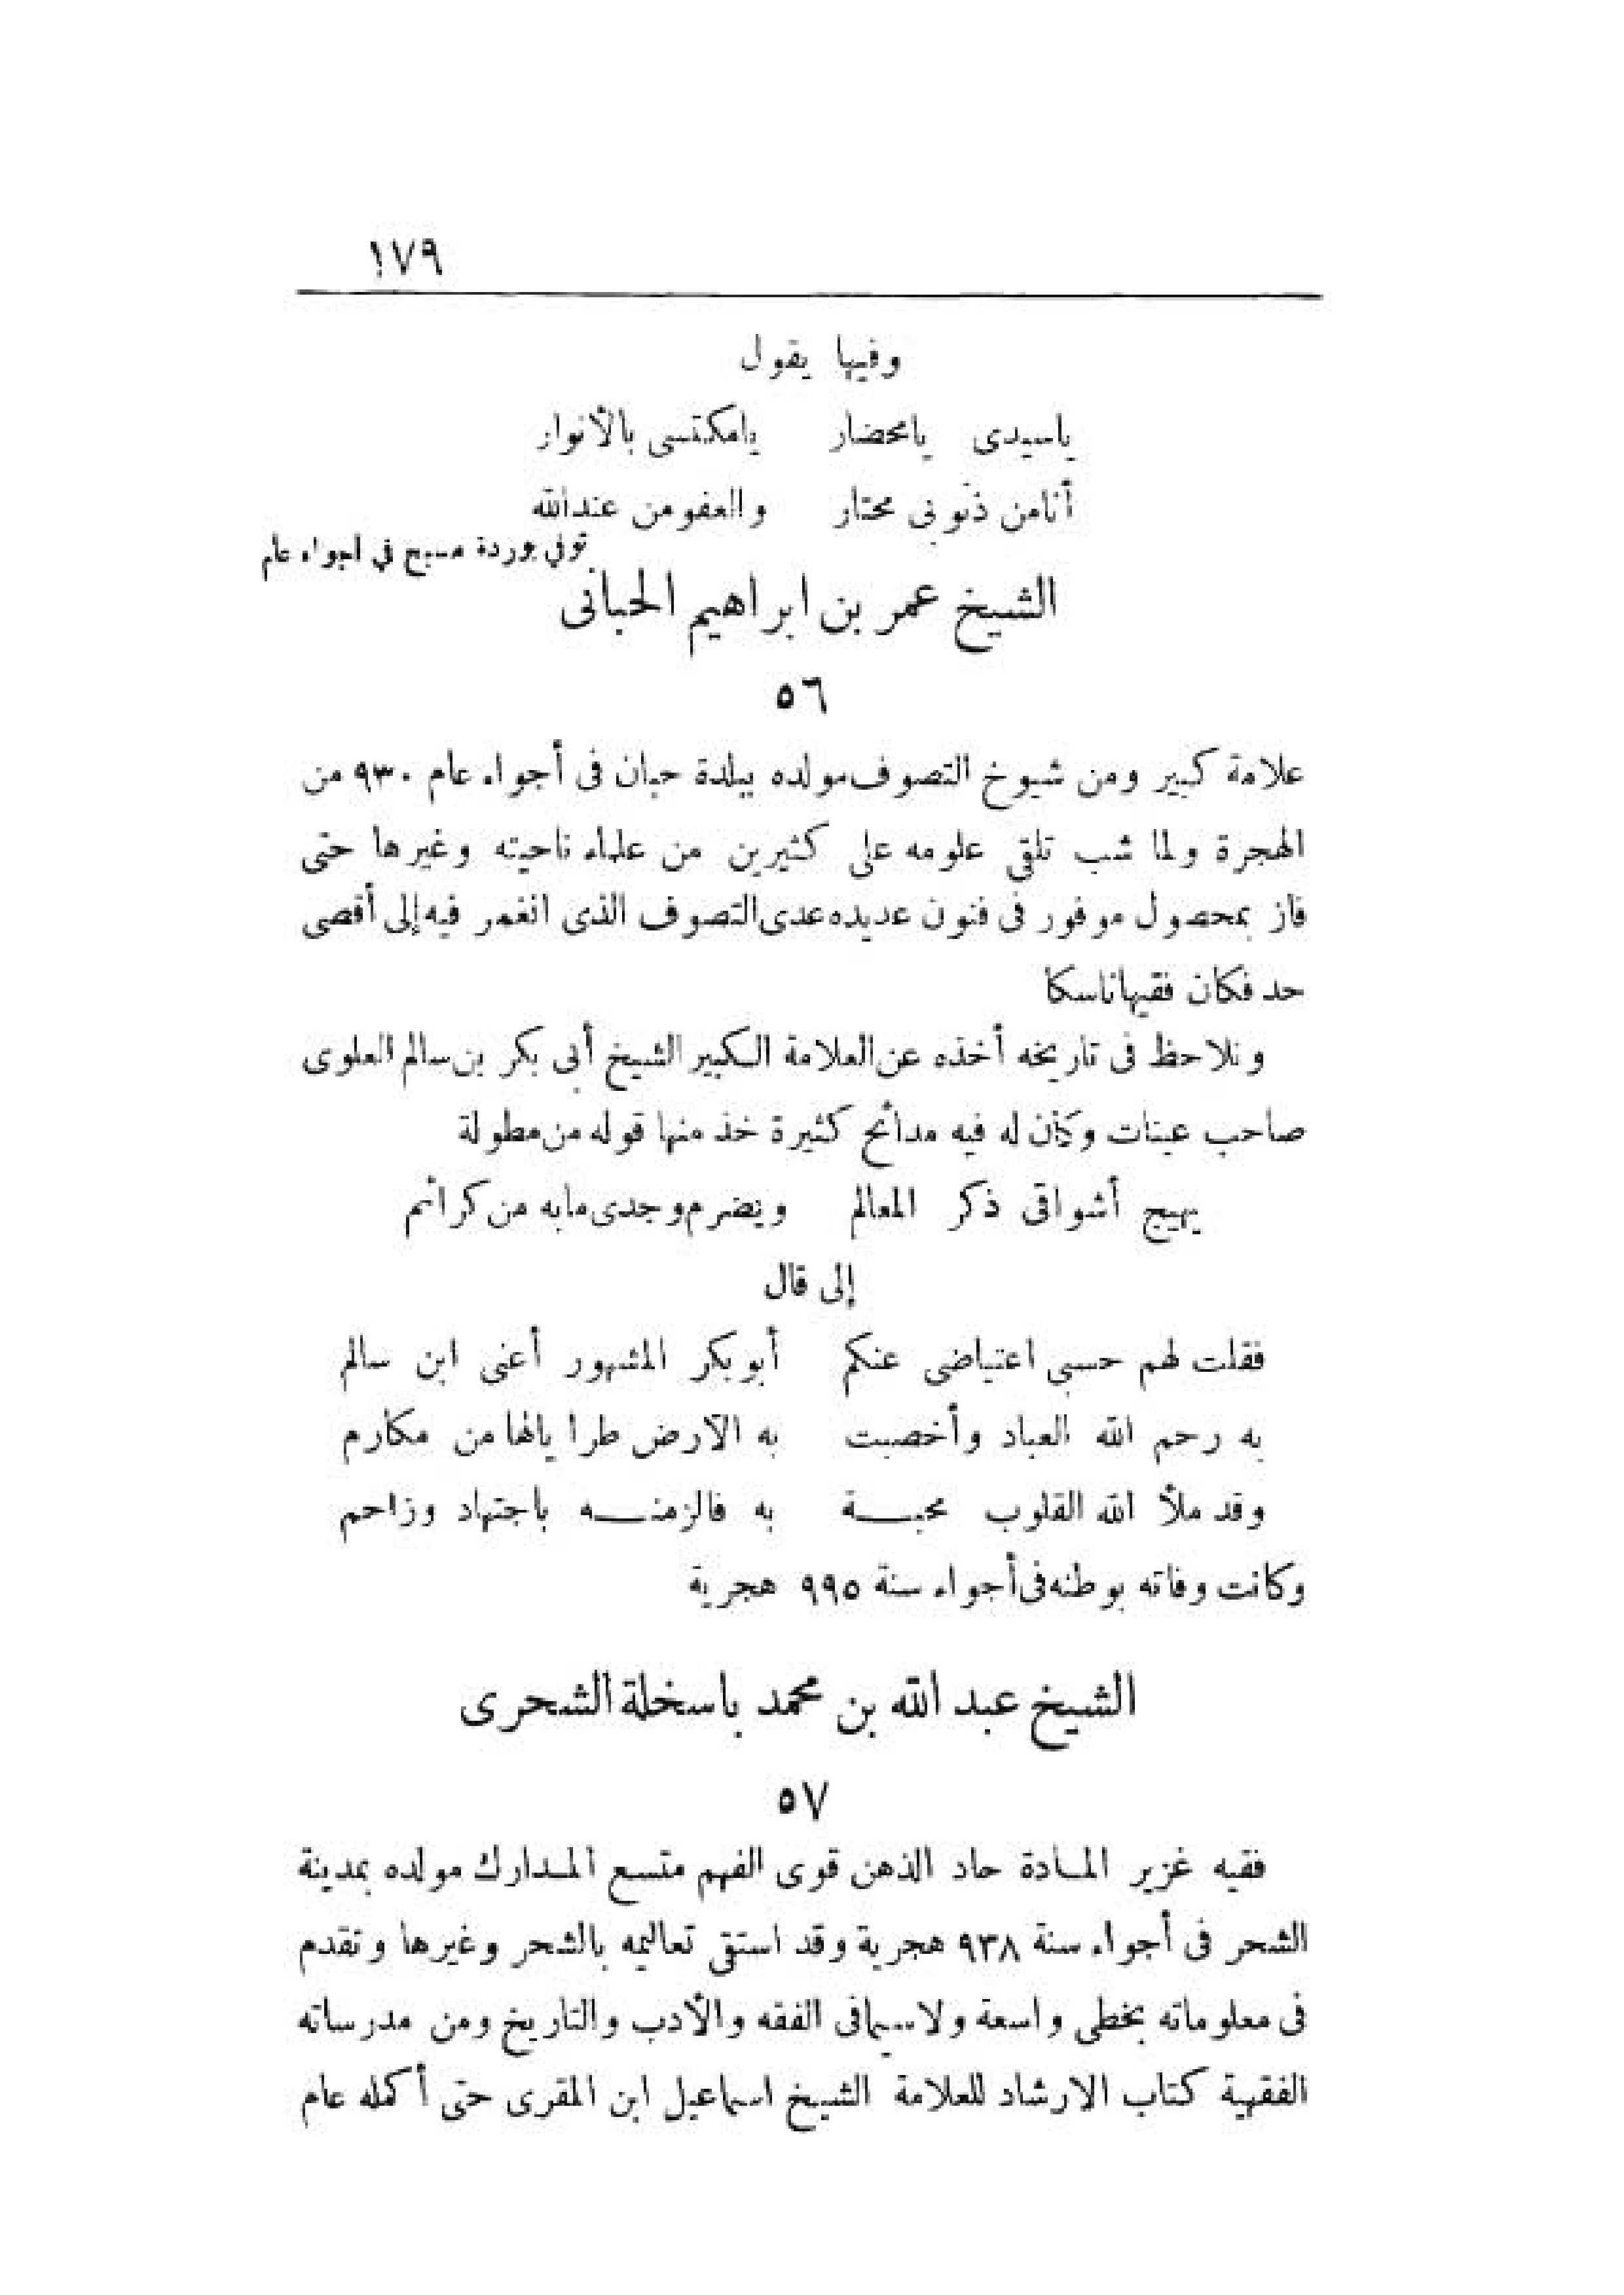 ١٧٩
وفيها يقول
ياسيدى يامحضار يامكتسى بالأنوار
أنا من ذنوبى محتار والعفو من عند الله
توفي في أجواء عام
الشيخ عمر بن ابراهيم الحبانى
٥٦
علامة كبير ومن شيوخ التصوف مولده ببلدة حبان فى أجواء عام ٩٣٠ من
الهجرة ولما شب تلقى علومه على كثيرين من علماء ناحيته وغيرها حتى
فاز بمحصول موفور فى فنون عديده عدى التصوف الذى انغمر فيه إلى أقصى
حد فكان فقيها ناسكا
ونلاحظ فى تاريخه أخذه عن العلامة الكبير الشيخ أبى بكر بن سالم العلوى
صاحب عينات وكأن له فيه مدائح كثيرة خذ منها قوله من مطولة
يهيج أشواقى ذكر المعالم ويضرم وجدى مابه من كرائم
إلى قال
فقلت لهم حسبى اعتياضى عنكم أبو بكر المشهور أعنى ابن سالم
به رحم الله العباد وأخصبت به الأرض طرا يالها من مكارم
وقد ملأ الله القلوب محبة به فالزمنه باجتهاد وزاحم
وكانت وفاته بوطنه فى أجواء سنة ٩٩٥ هجرية
الشيخ عبد الله بن محمد باسخلة الشحرى
٥٧
فقيه غزير المادة حاد الذهن قوى الفهم متسع المدارك مولده بمدينة
الشحر فى أجواء سنة ٩٣٨ هجرية وقد استقى تعاليمه بالشحر وغيرها وتقدم
فى معلوماته بخطى واسعة ولاسيما فى الفقه والأدب والتاريخ ومن مدرساته
الفقهية كتاب الارشاد للعلامة الشيخ اسماعيل ابن المقرى حتى أكمله عام